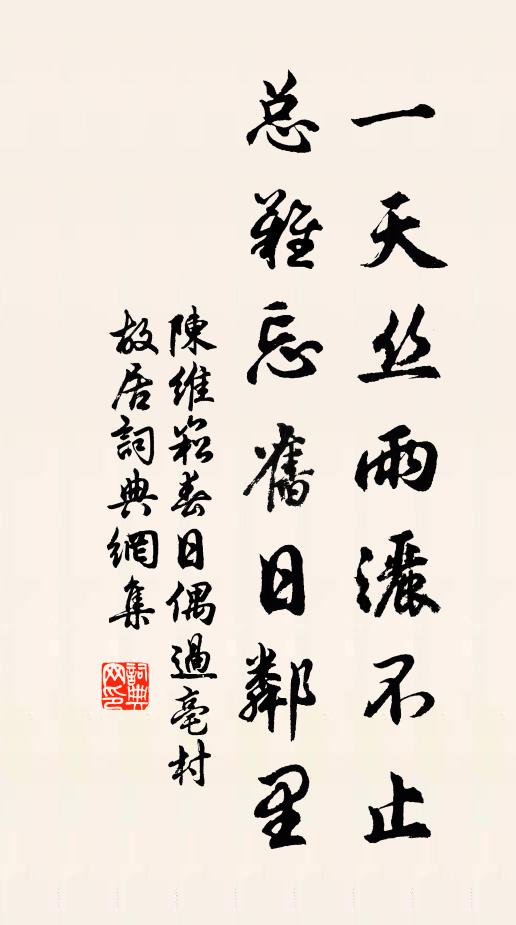 一天丝雨灑不止
总難忘舊日鄰里
陳維菘春日偶過亳村
故居詞典網集
詞典网印